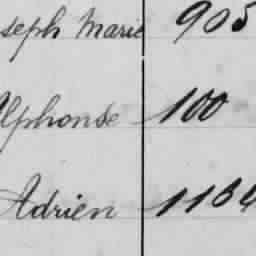 seph Marie 905
Alphonse 100
Adrien 1134